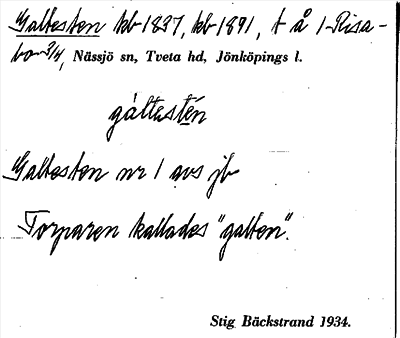 Galtesten kb 1837, kb 1891, t å 1 Risa-
bo 3/4, Nässjö sn, Tveta hd, Jönköpings l.
gáltestén
Galtesten nr 1 avs jb
Torparen kallades "galten".
Stig Bäckstrand 1934.